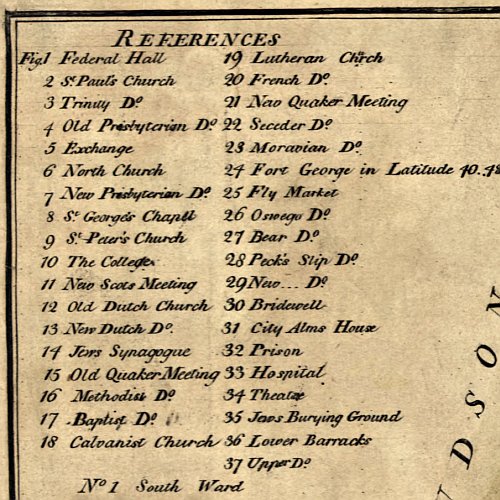 REFERENCES
Fig.1 Federal Hall
2 St. Paul's Church
3 Trinity Do.
4 Old Presbyterian Do.
5 Exchange
6 North Church
7 New Presbyterian Do.
8 St. George's Chapel
9 St. Peter's Church
10 The College
11 New Scots Meeting
12 Old Dutch Church
13 New Dutch Do.
14 Jews Synagogue
15 Old Quaker Meeting
16 Methodist Do.
17 Baptist Do.
18 Calvanist Church
19 Lutheran Chrch
20 French Do.
21 New Quaker Meeting
22 Seceder Do.
23 Moravian Do.
24 Fort George in Latitude 40.42
25 Fly Market
26 Oswego Do.
27 Bear Do.
28 Peck's Slip Do.
29 New... Do.
30 Bridewell
31 City Alms House
32 Prison
33 Hospital
34 Theatre
35 Jews Burying Ground
36 Lower Barracks
37 Upper Do.
No. 1 South Ward
UDSON